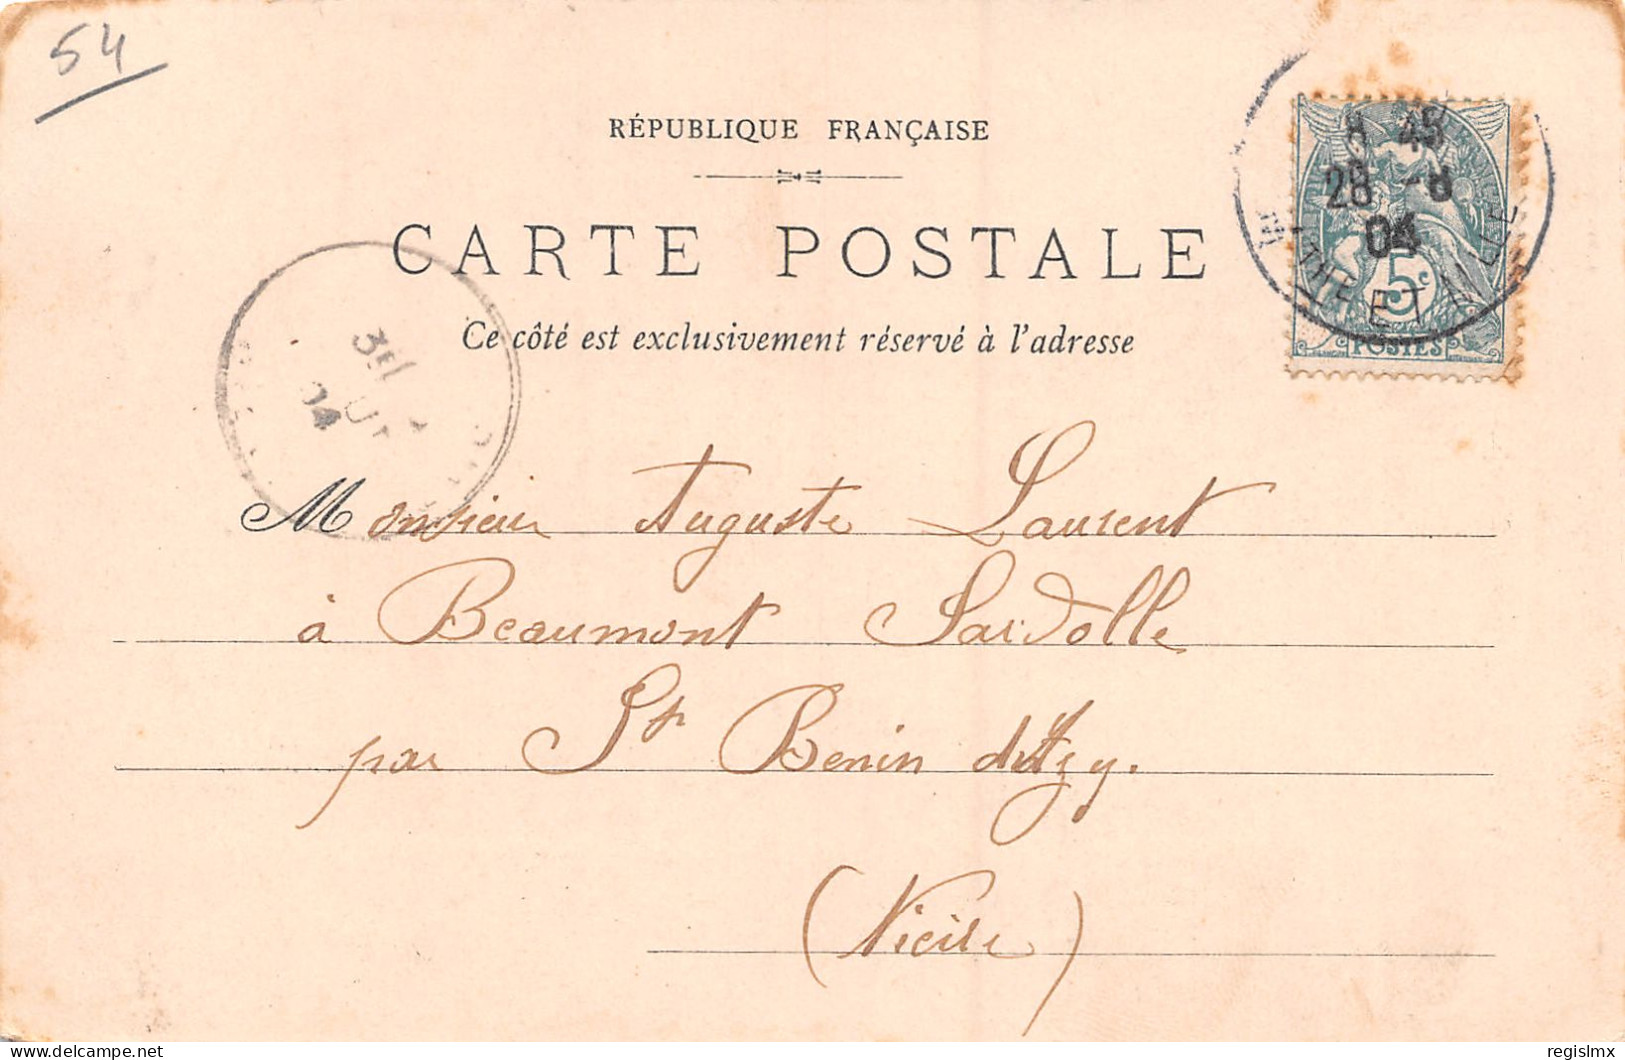 54
RÉPUBLIQUE FRANÇAISE
CARTE POSTALE
Ce côté est exclusivement réservé à l'adresse
8 45
28 -8
04
MRTHE ET M LLE
5c
POSTES
04
Monsieur Auguste Laurent
à Beaumont Sardolle
par St Benin d'Azy.
(Nièvre)
regislmx